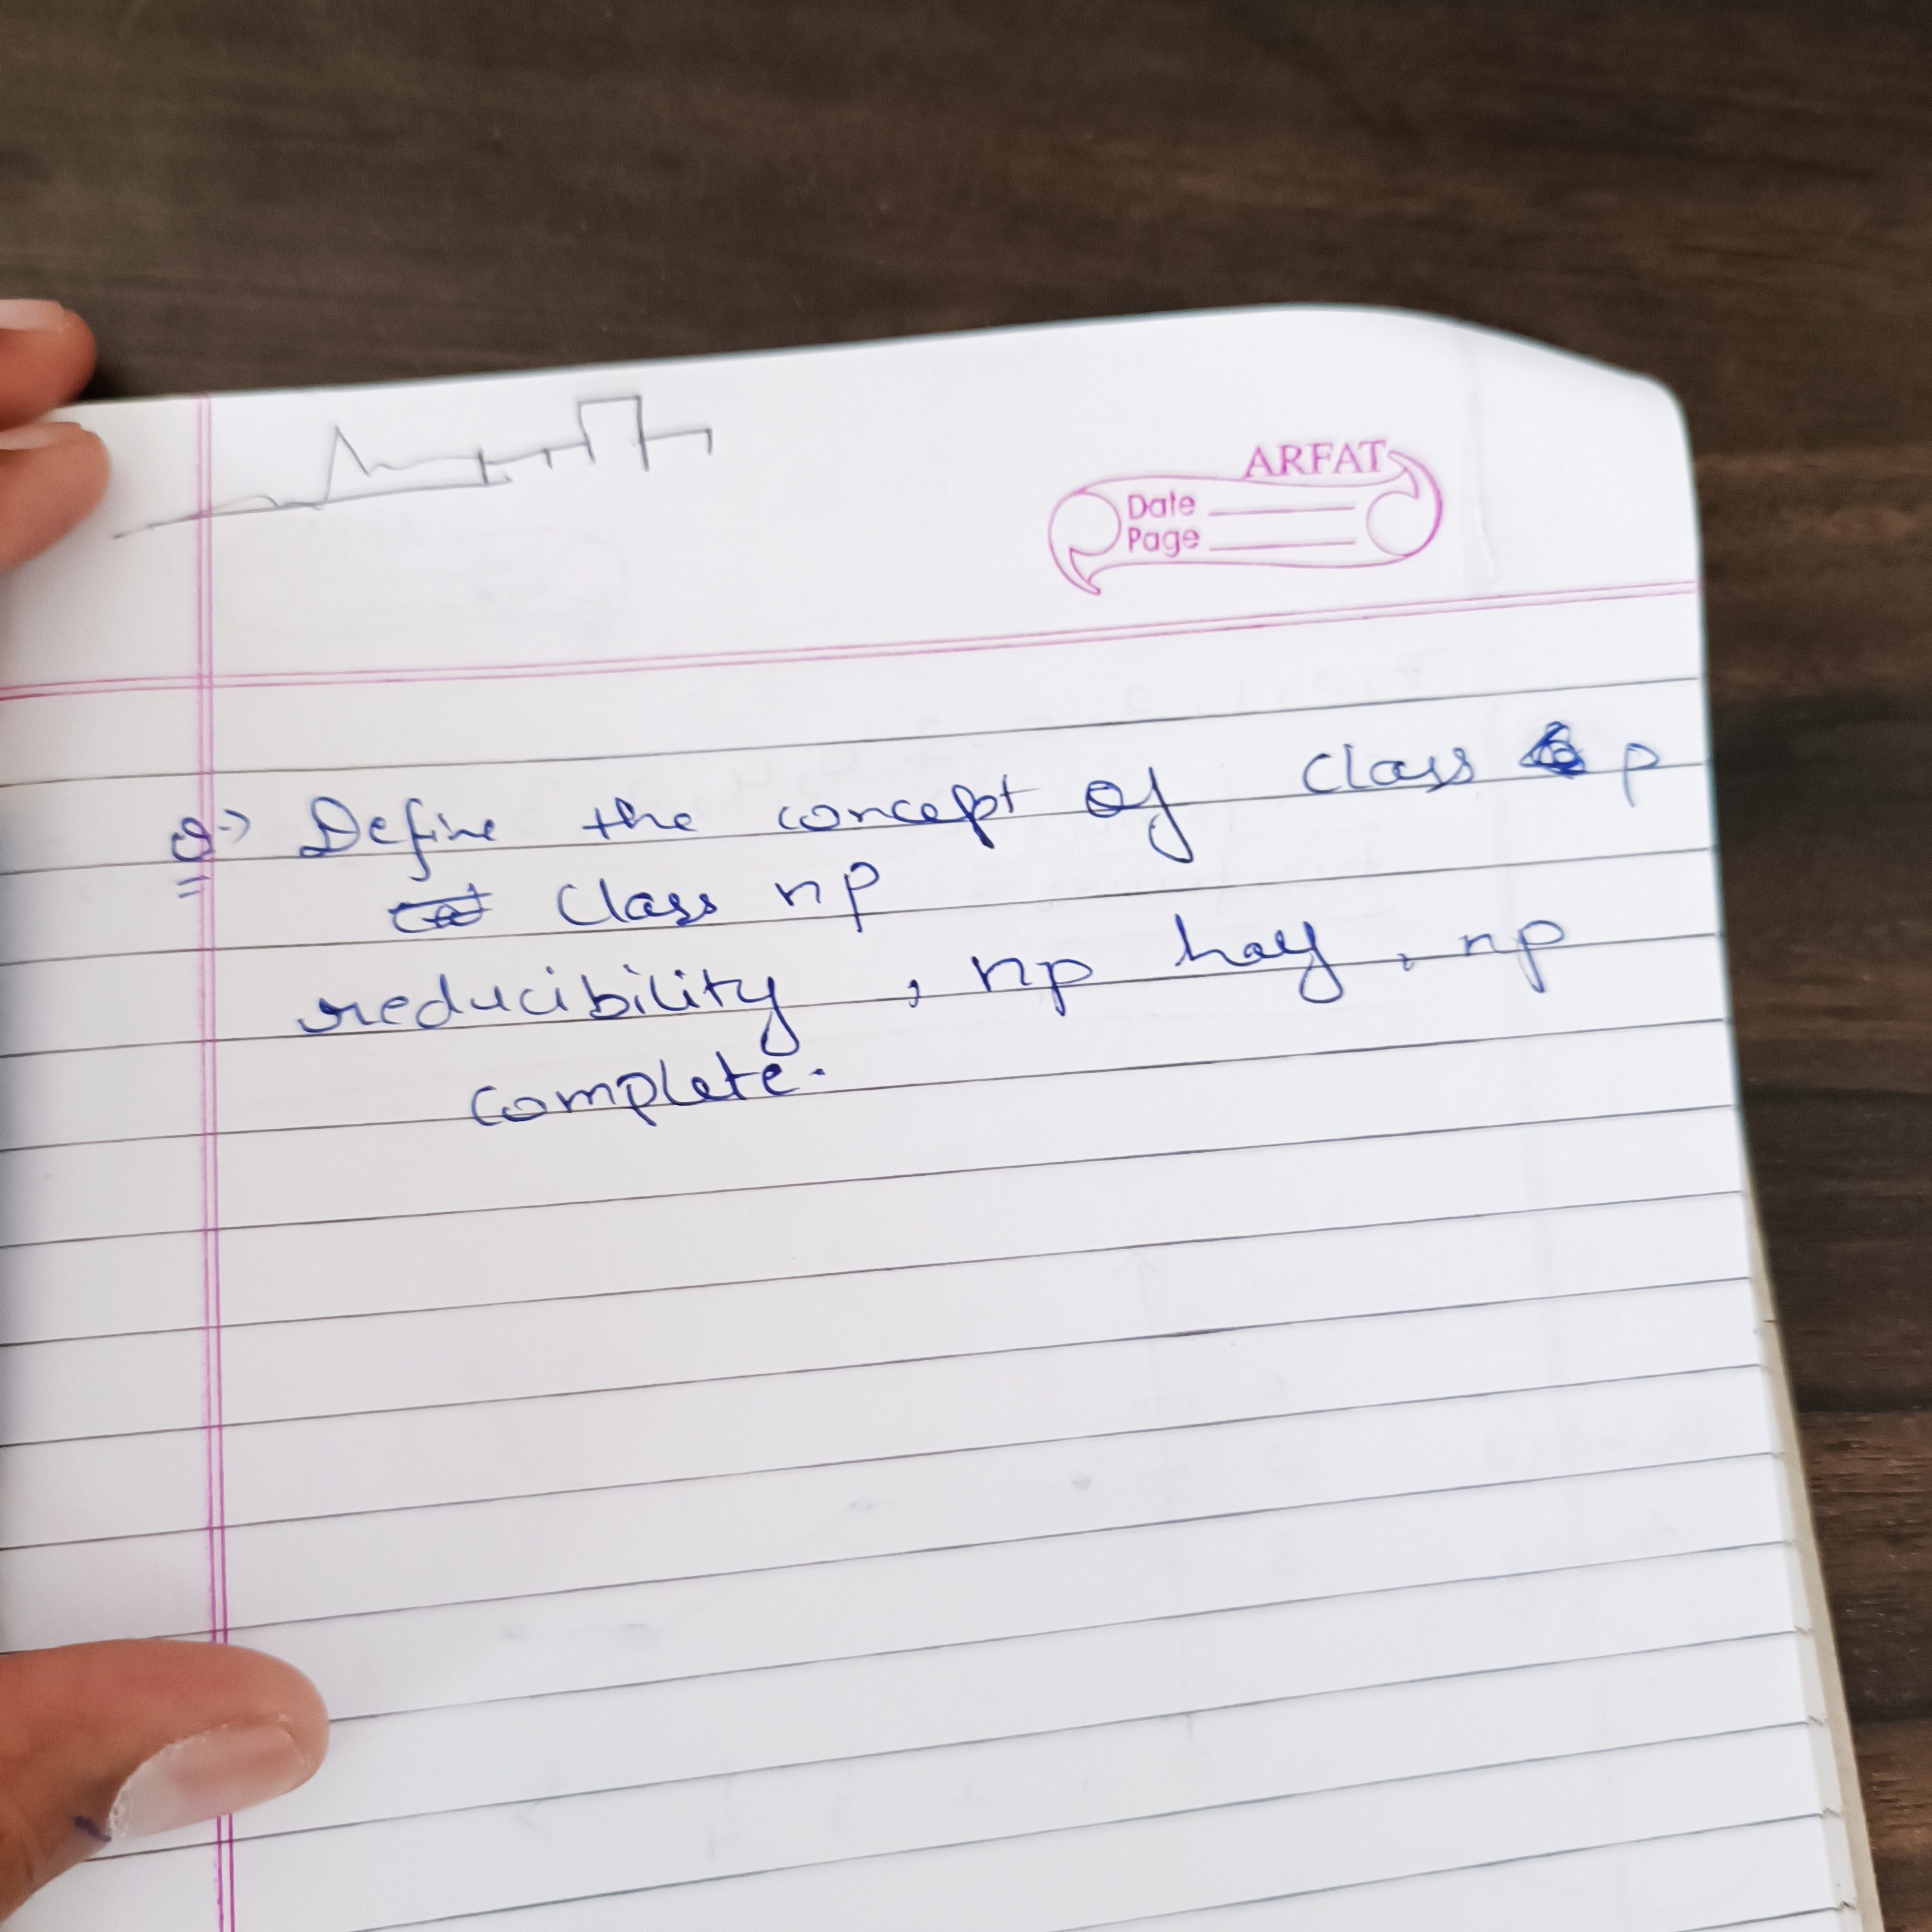 ARFAT
Date
Page
Q→ Define the concept of class p
class np
reducibility , np hay , np
complete.